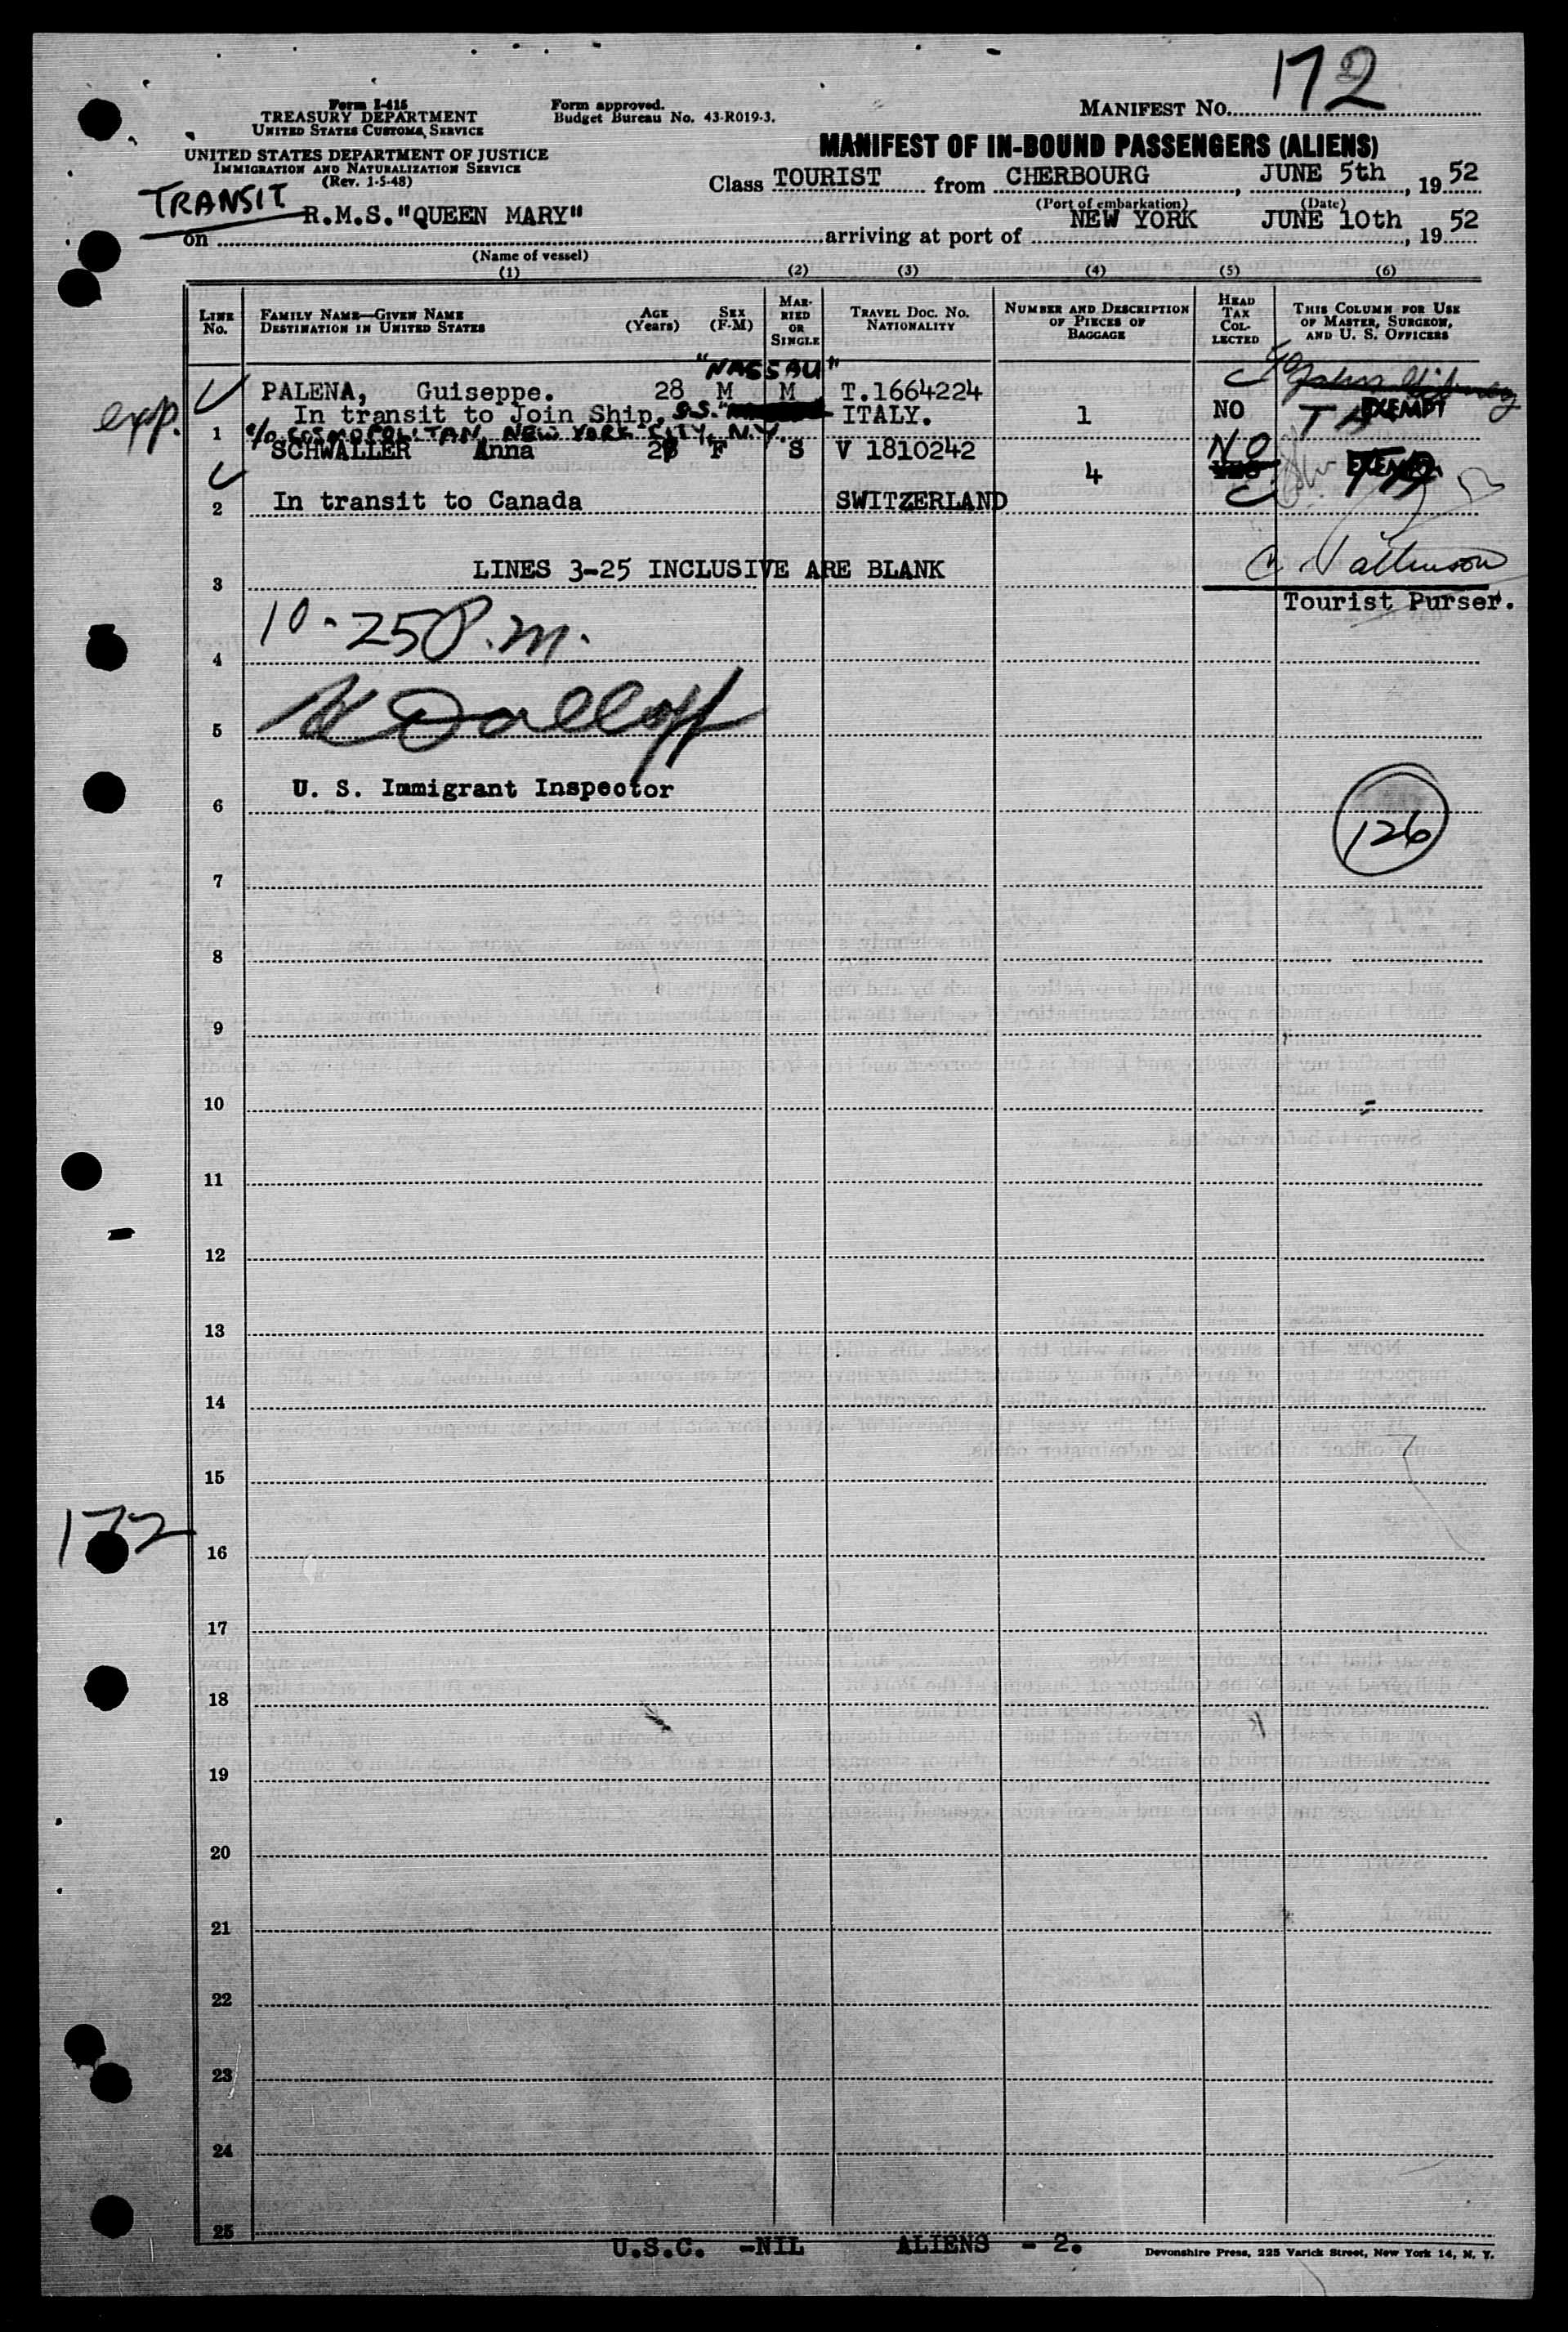 172
Form I-415
TREASURY DEPARTMENT
UNITED STATES CUSTOMS SERVICE
Form approved.
Budget Bureau No. 43-R019-3.
MANIFEST No.
UNITED STATES DEPARTMENT OF JUSTICE
IMMIGRATION AND NATURALIZATION SERVICE
(Rev. 1-5-48)
MANIFEST OF IN-BOUND PASSENGERS (ALIENS)
Class TOURIST from CHERBOURG, JUNE 5th, 19 52
(Port of embarkation) (Date)
TRANSIT
on R.M.S. "QUEEN MARY" arriving at port of NEW YORK JUNE 10th, 19 52
(Name of vessel)
(1) (2) (3) (4) (5) (6)
LINE No. FAMILY NAME—GIVEN NAME DESTINATION IN UNITED STATES AGE (Years) SEX (F-M) MARRIED OR SINGLE TRAVEL DOC. NO. NATIONALITY NUMBER AND DESCRIPTION OF PIECES OF BAGGAGE HEAD TAX COLLECTED THIS COLUMN FOR USE OF MASTER, SURGEON, AND U. S. OFFICERS
"NASSAU"
PALENA, Guiseppe. 28 M M T.1664224
exp. In transit to Join Ship, S.S. ITALY. 1 NO EXEMPT
1 c/o COSMOPOLITAN, NEW YORK CITY, N.Y.
SCHWALLER Anna F S V 1810242 NO
4 EXEMPT
2 In transit to Canada SWITZERLAND
LINES 3-25 INCLUSIVE ARE BLANK
3
Tourist Purser.
10-25 P.m.
4
5
U. S. Immigrant Inspector
6
126
7
8
9
10
11
12
13
14
15
172
16
17
18
19
20
21
22
23
24
25
U.S.C. -NIL ALIENS - 2.
Devonshire Press, 225 Varick Street, New York 14, N. Y.